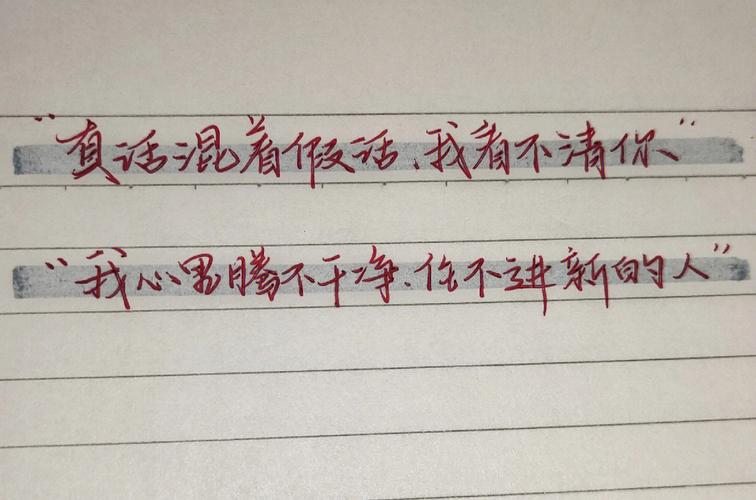 “真话混着假话、我看不清你”
“我心里腾不干净、住不进新的人”